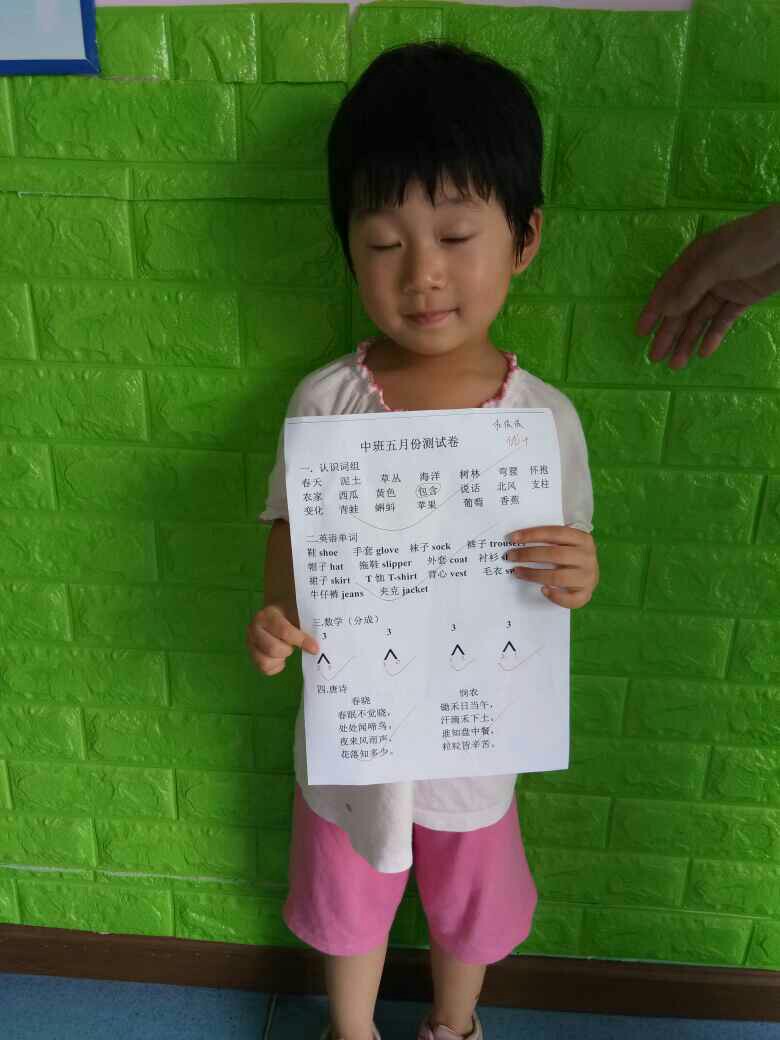 中班五月份测试卷
一. 认识词组
春天 泥土 草丛 海洋 树林 弯腰 怀抱
农家 西瓜 黄色 包含 说话 北风 支柱
变化 青蛙 蝌蚪 苹果 葡萄 香蕉
二.英语单词
鞋 shoe 手套 glove 袜子 sock 裤子 trousers
帽子 hat 拖鞋 slipper 外套 coat 衬衫
裙子 skirt T 恤 T-shirt 背心 vest 毛衣
牛仔裤 jeans 夹克 jacket
三.数学（分成）
3 3 3 3
四.唐诗
春晓 悯农
春眠不觉晓， 锄禾日当午，
处处闻啼鸟， 汗滴禾下土，
夜来风雨声， 谁知盘中餐，
花落知多少。 粒粒皆辛苦。